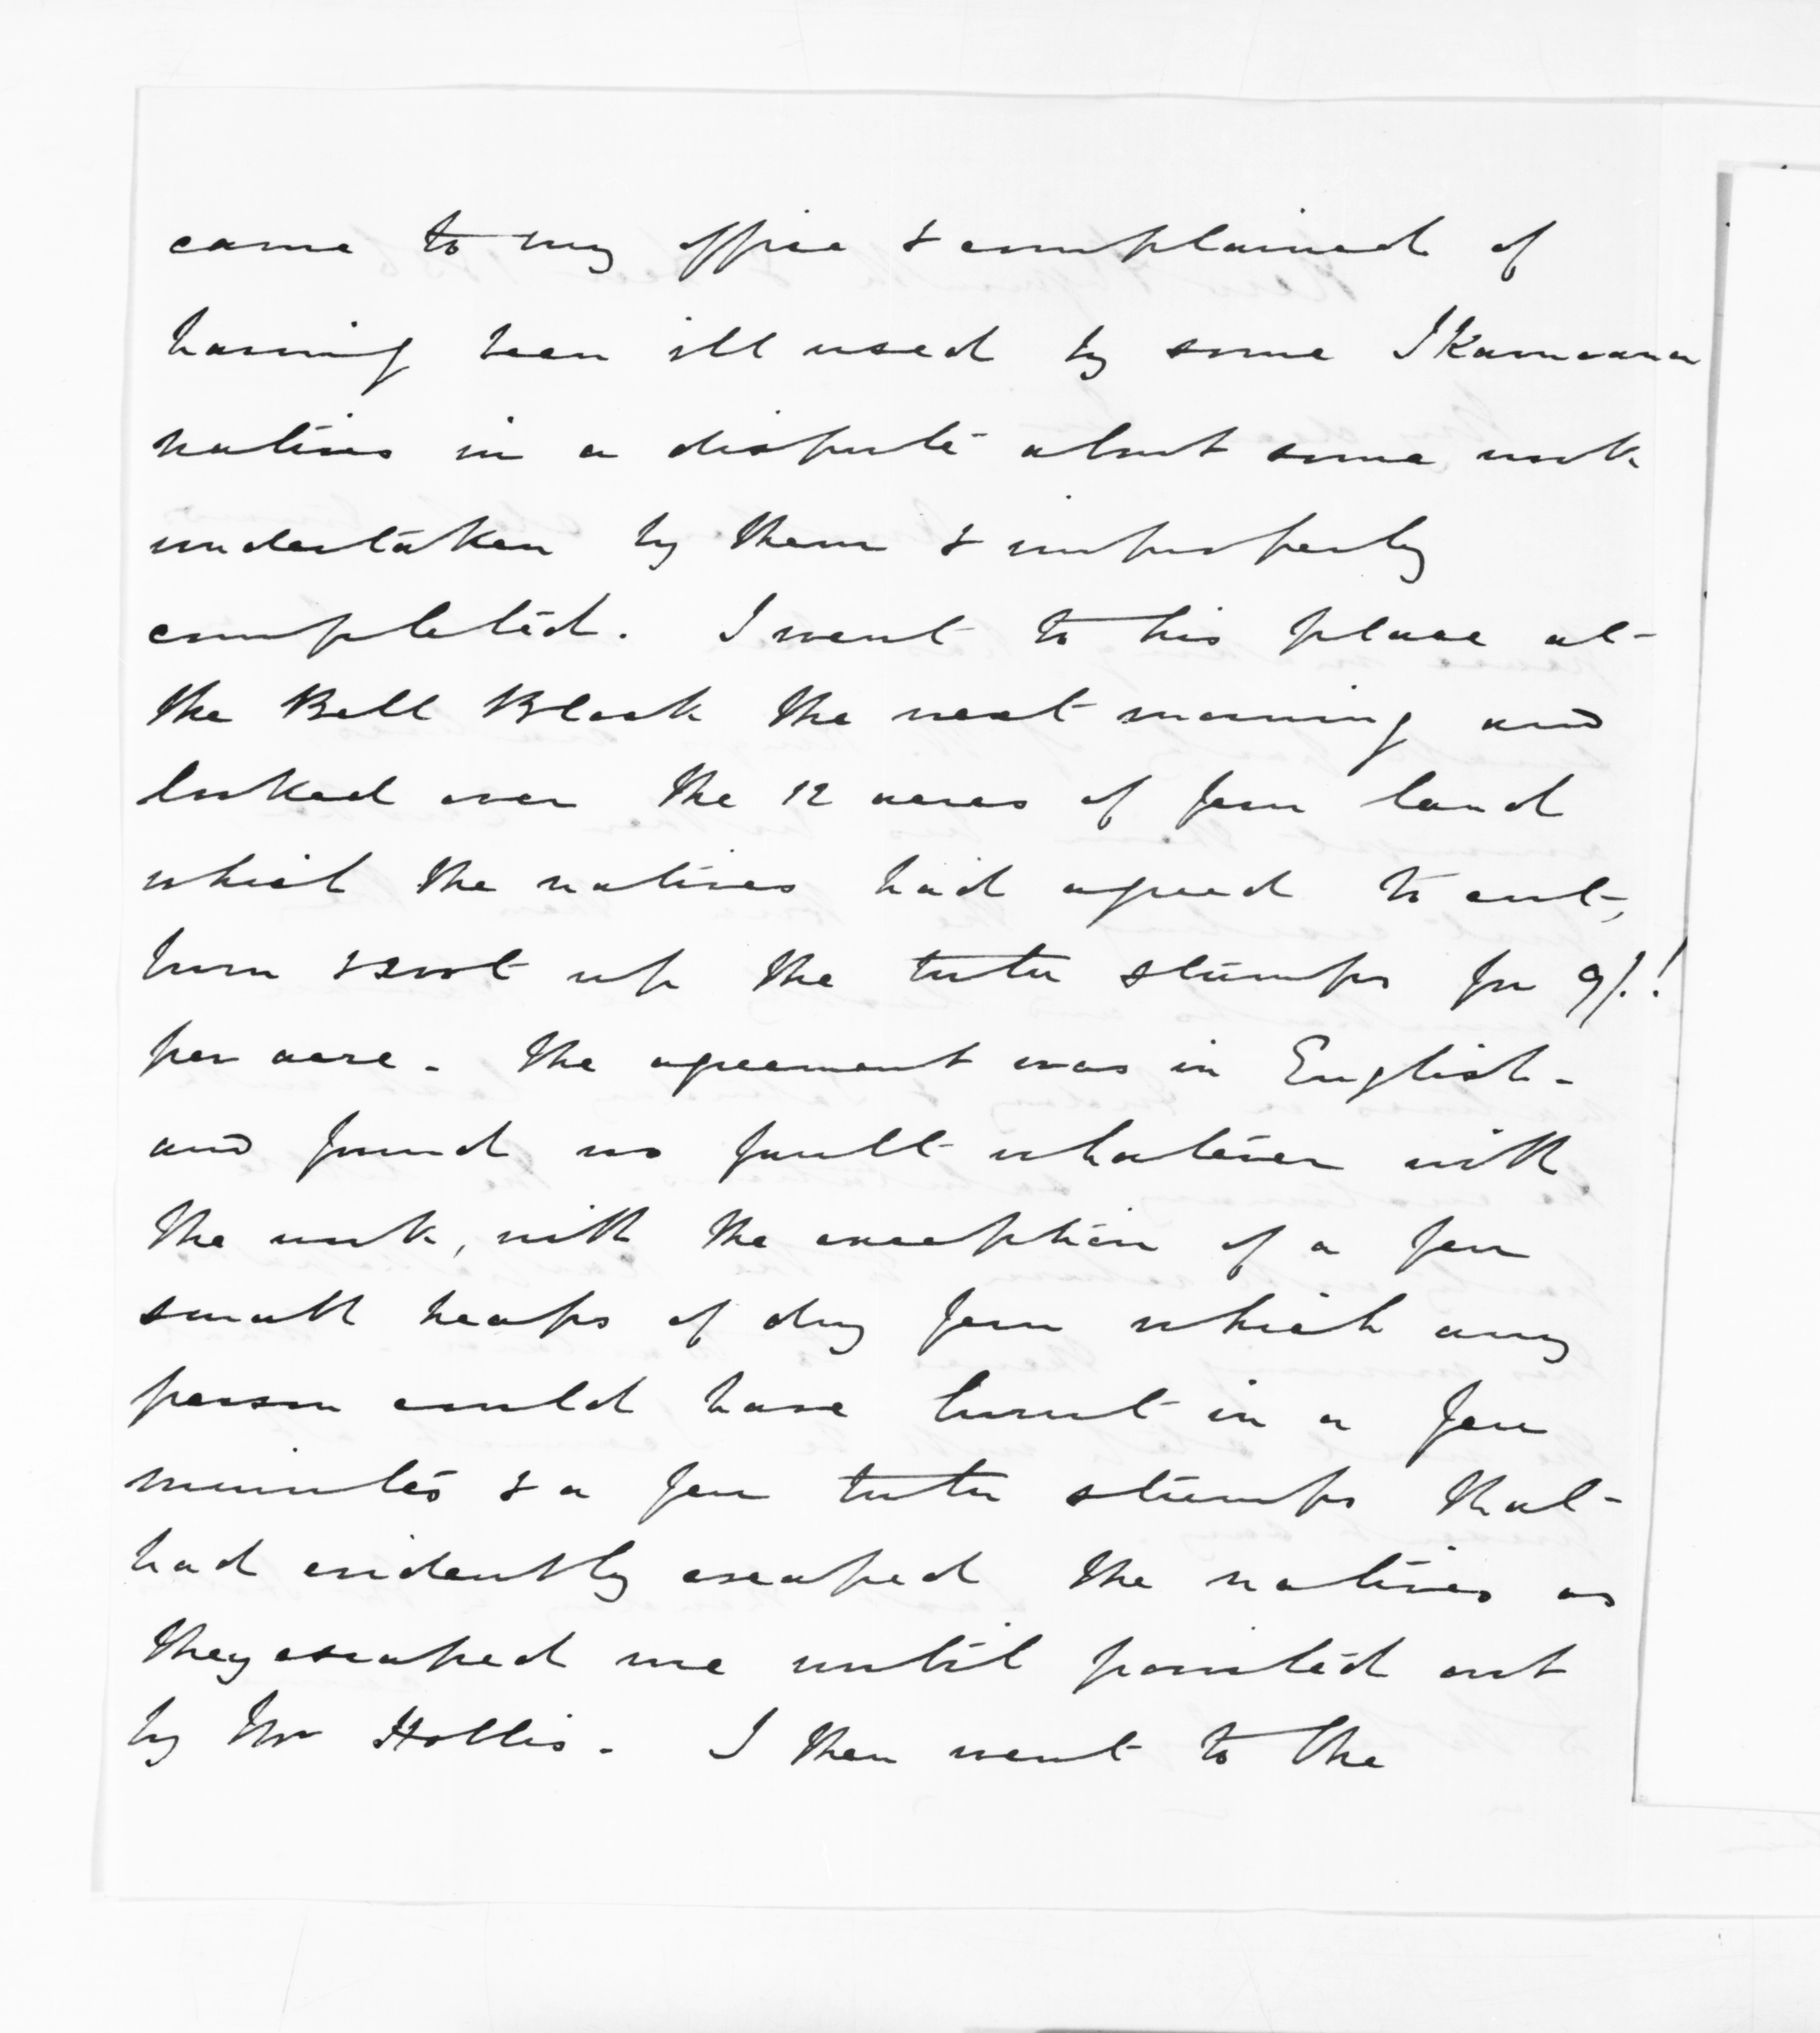 came to my office & complained of
having been ill used by some Ikamoana
natives in a dispute about some work
undertaken by them & improperly
completed. I went to his place at
the Bell Block the next morning and
looked over the 12 acres of fern land
which the natives had agreed to cut,
burn & root up the tutu stumps for 9/.!
per acre. The agreement was in English.
and found no fault whatever with
the work, with the exception of a few
small heaps of dry fern which any
person could have burnt in a few
minutes & a few tutu stumps that
had evidently escaped the natives as
they escaped me until pointed out
by Mr Hollis. I then went to the